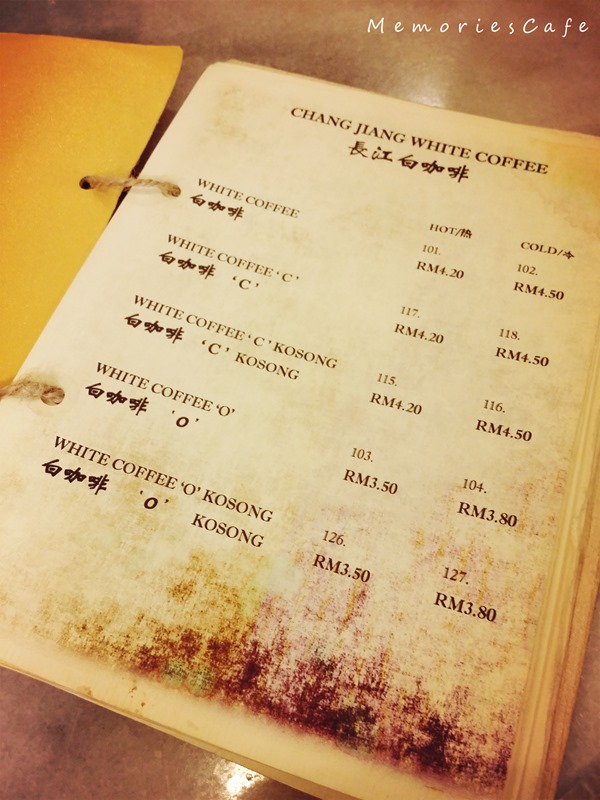 MemoriesCafe
CHANG JIANG WHITE COFFEE
長江白咖啡
HOT/热 COLD/冷
WHITE COFFEE 101. 102.
白咖啡 RM4.20 RM4.50
WHITE COFFEE 'C' 117. 118.
白咖啡 'C' RM4.20 RM4.50
WHITE COFFEE 'C' KOSONG 115. 116.
白咖啡 'C' KOSONG RM4.20 RM4.50
WHITE COFFEE 'O' 103. 104.
白咖啡 'O' RM3.50 RM3.80
WHITE COFFEE 'O' KOSONG 126. 127.
白咖啡 'O' KOSONG RM3.50 RM3.80